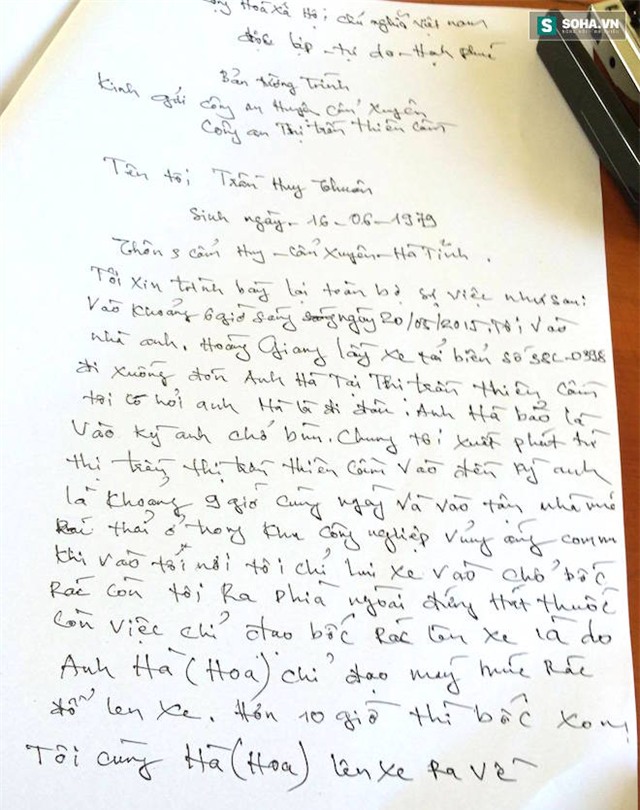 SOHA.VN
Cộng Hoà Xã Hội chủ nghĩa Việt Nam
độc lập - tự do - Hạnh phúc
Bản tường Trình
Kính gửi công an Huyện Cẩm Xuyên
Công an Thị trấn Thiên Cầm
Tên tôi Trần Huy Thuân
Sinh ngày - 16 - 06 - 1979
Thôn 3 Cẩm Huy - Cẩm Xuyên - Hà Tĩnh.
Tôi xin trình bày lại toàn bộ sự việc như sau:
Vào khoảng 6 giờ sáng ngày 20/05/2015. Tôi vào
nhà anh. Hoàng Giang lấy xe tải biển số 38C-0398
đi xuống đón Anh Hà Tại Thị trấn thiên Cầm
tôi có hỏi anh Hà là đi đâu: Anh Hà bảo là
Vào Kỳ anh chở bùn. Chung tôi xuất phát từ
thị trấn thị trấn thiên Cầm vào đến kỳ anh
là khoảng 9 giờ cùng ngày và vào tận nhà
thải ở trong khu công nghiệp Vũng áng
khi vào tới nơi tôi chỉ lui xe vào chỗ bốc
Rác còn tôi Ra phía ngoài đứng hút thuốc
còn việc chỉ đạo bốc Rác lên xe là do
Anh Hà (Hoa) chỉ đạo máy múc Rác
đổ lên xe. Hơn 10 giờ thì bốc xong
Tôi cùng Hà (Hoa) lên xe Ra về